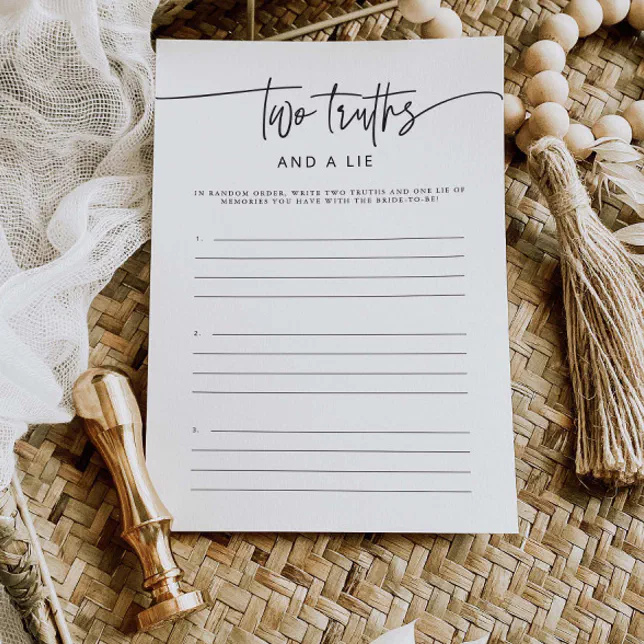 two truths
AND A LIE
IN RANDOM ORDER, WRITE TWO TRUTHS AND ONE LIE OF
MEMORIES YOU HAVE WITH THE BRIDE-TO-BE!
1.
2.
3.